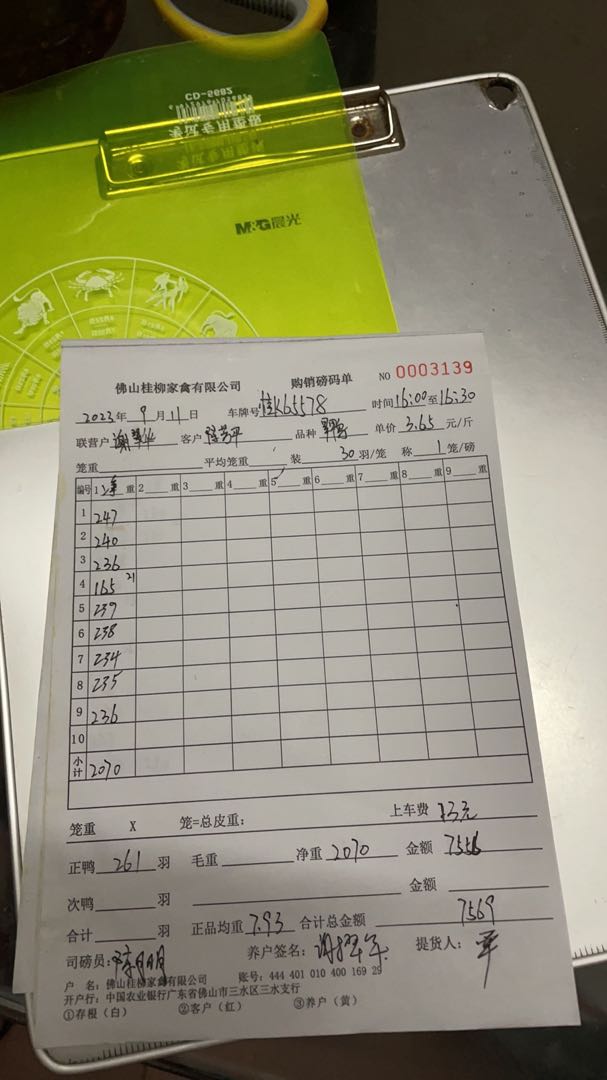 CD-5682
考试专用垫板
M&G晨光
佛山桂柳家禽有限公司 购销磅码单 NO 0003139
2023年 9月 11日 车牌号 桂K65578 时间 16:00至16:30
联营户 客户 品种 单价 3.65 元/斤
笼重 平均笼重 装 30 羽/笼 称 1 笼/磅
编号 1 净 重 2 重 3 重 4 重 5 重 6 重 7 重 8 重 9 重
1 247
2 240
3 236
4 165 21
5 239
6 238
7 234
8 235
9 236
10
小计 2070
笼重 X 笼=总皮重: 上车费 13元
正鸭 261 羽 毛重 净重 2070 金额 7556
次鸭 羽 金额
合计 羽 正品均重 7.93 合计总金额 7569
司磅员: 养户签名: 提货人: 平
户 名: 佛山桂柳家禽有限公司 账号: 444 401 010 400 169 29
开户行: 中国农业银行广东省佛山市三水区三水支行
①存根(白) ②客户(红) ③养户(黄)